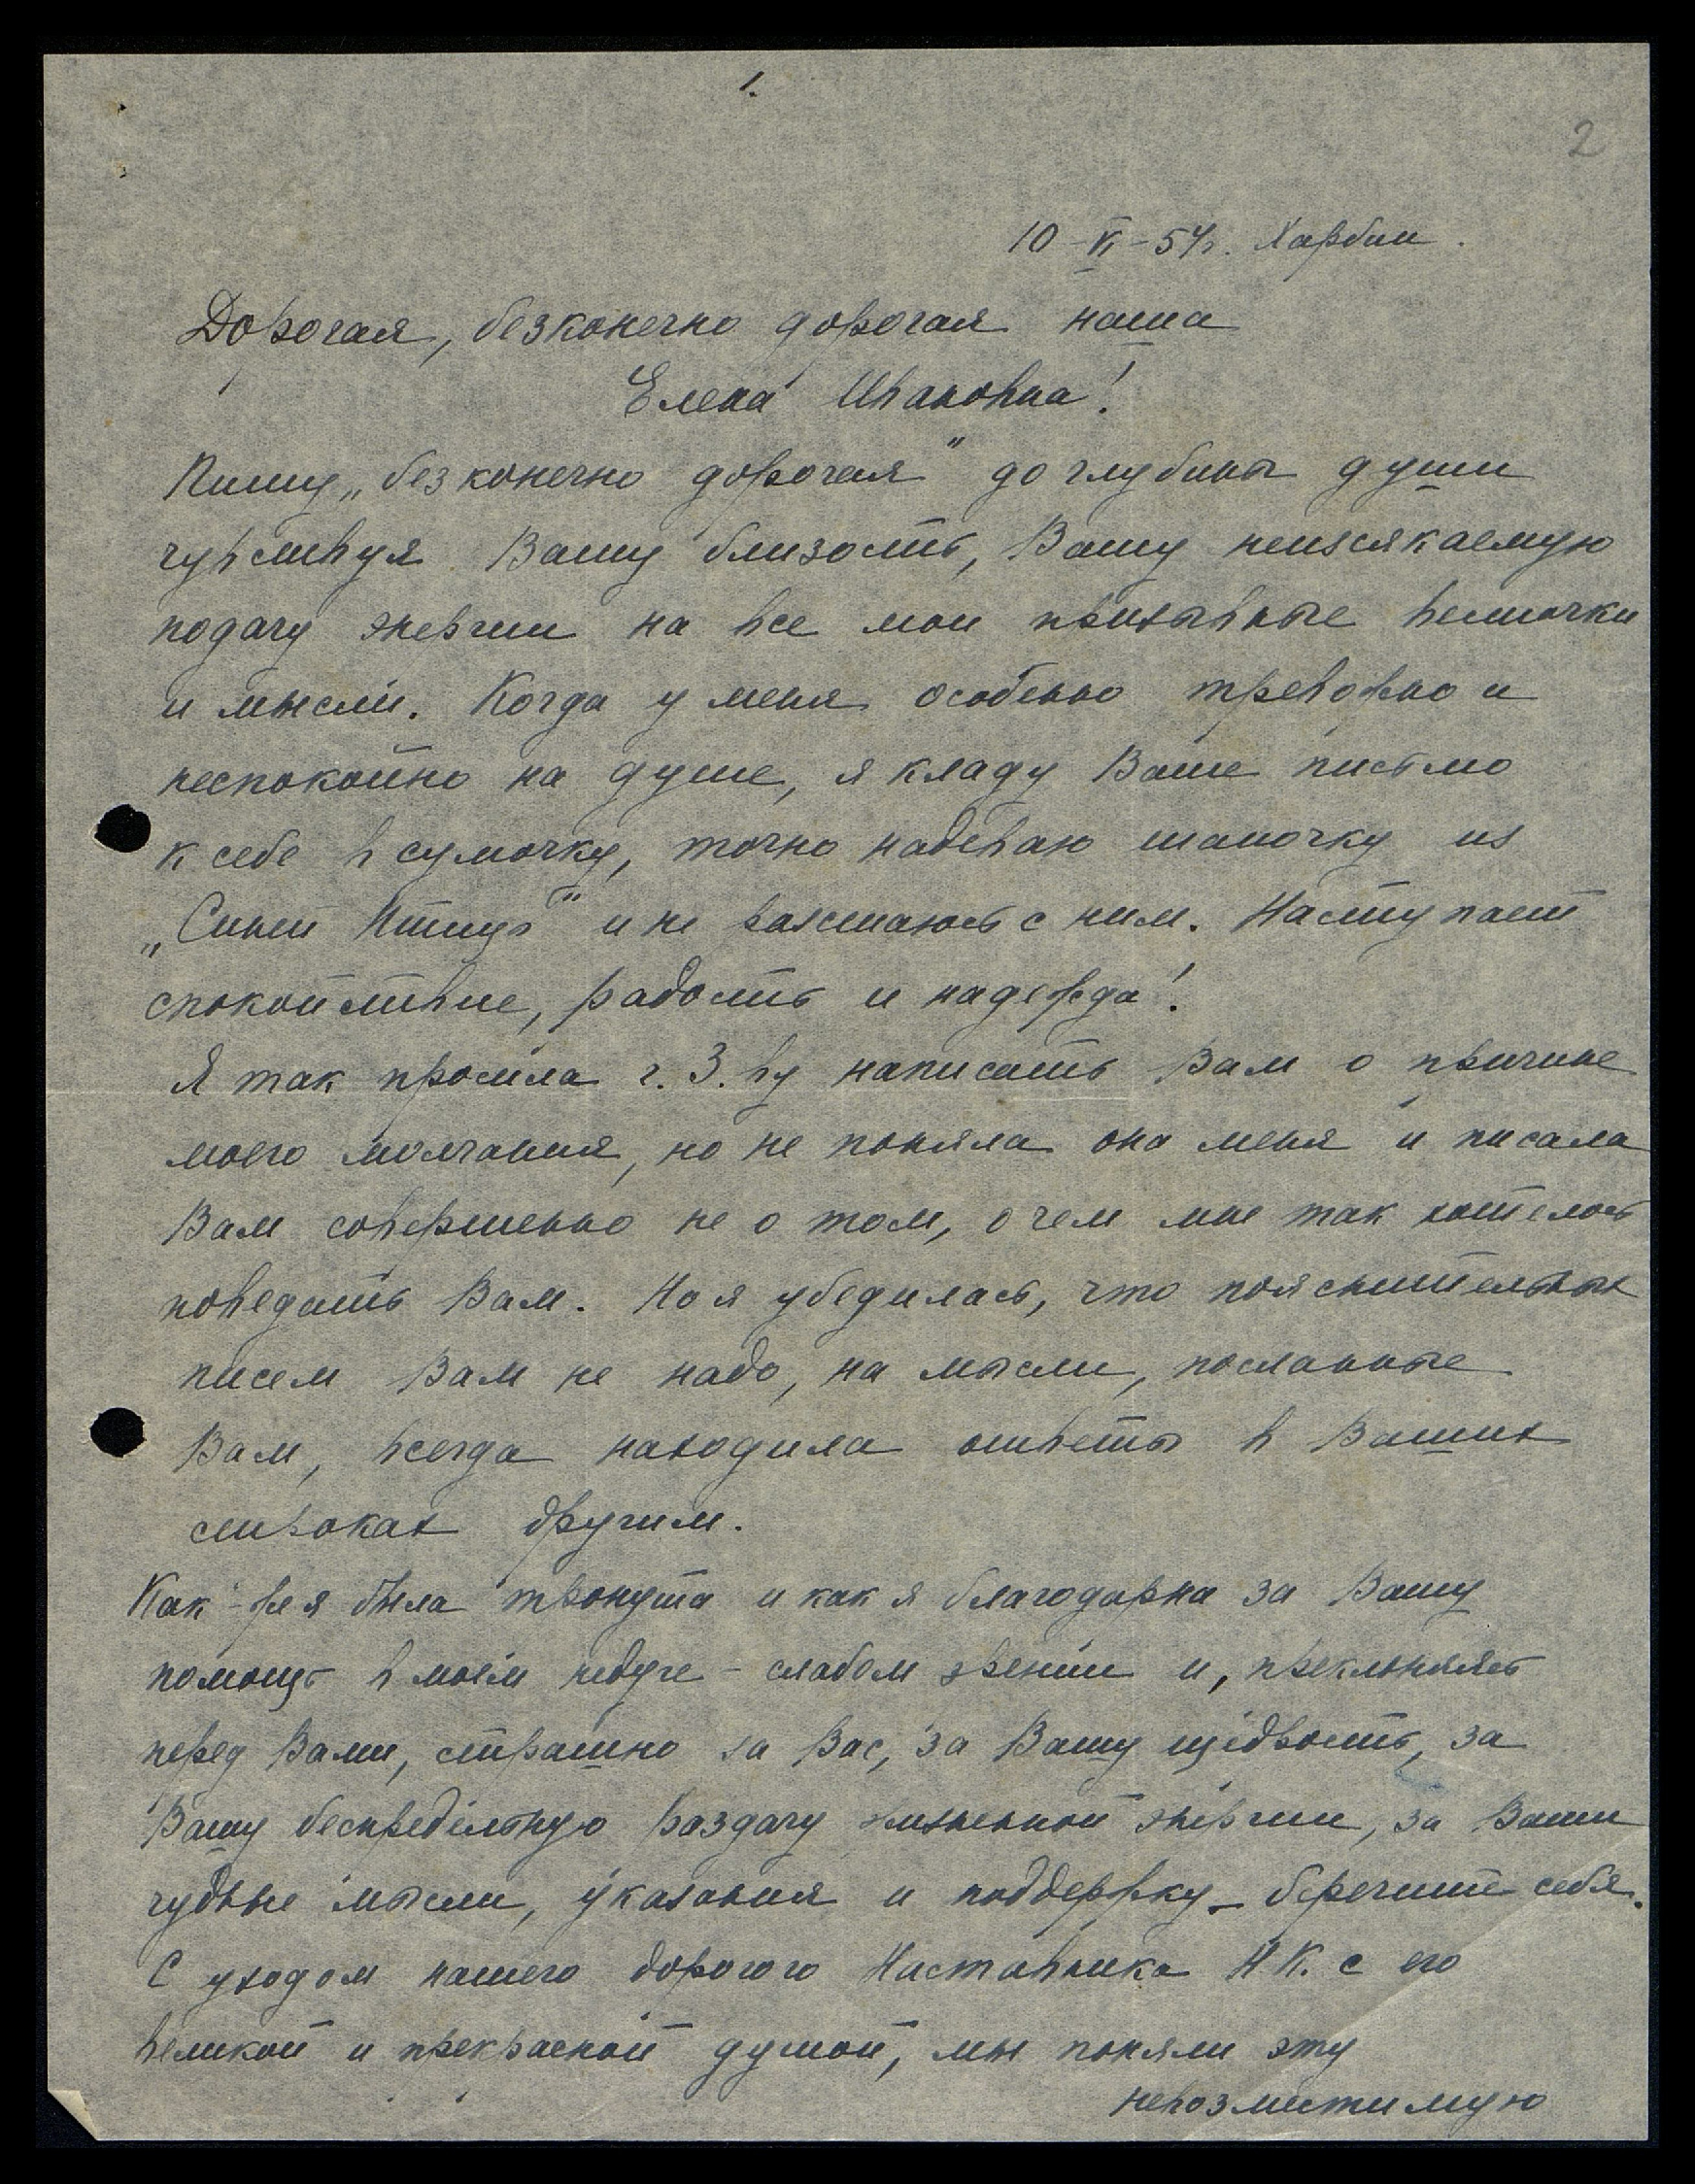 1.
2
10-VI-54г. Харбин.
Дорогая, безконечно дорогая наша
Елена Ивановна!
Пишу „безконечно дорогая" до глубины души
чувствуя Вашу близость, Вашу неизсякаемую
подачу энергии на все мои призывные весточки
и мысли. Когда у меня особенно тревожно и
неспокойно на душе, я кладу Ваше письмо
к себе в сумочку, точно надеваю шапочку из
„Синей Птицы" и не разстаюсь с ним. Наступает
спокойствие, радость и надежда!
Я так просила г. З.ву написать Вам о причине
моего молчания, но не поняла она меня и писала
Вам совершенно не о том, о чем мне так хотелось
поведать Вам. Но я убедилась, что пояснительных
писем Вам не надо, на мысли, посланные
Вам, всегда находила ответы в Ваших
строках другим.
Как же я была тронута и как я благодарна за Вашу
помощь в моем недуге - слабом зрении и, преклоняясь
перед Вами, страшно за Вас, за Вашу щедрость, за
Вашу беспредельную раздачу жизненной энергии, за Ваши
чудные мысли, указания и поддержку - берегите себя.
С уходом нашего дорогого Наставника Н.К. с его
великой и прекрасной душой, мы поняли эту
невозместимую